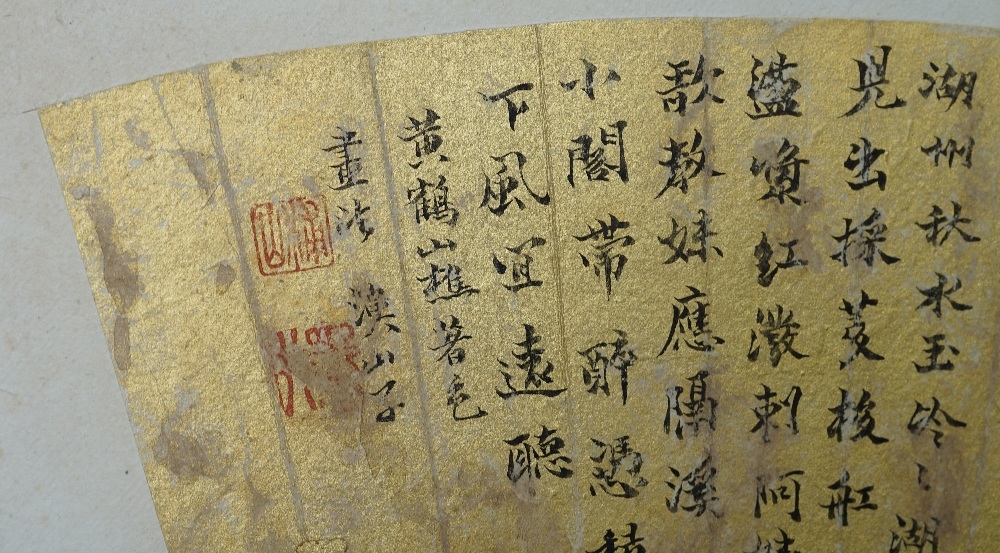 湖州秋水玉冷〻湖
見出採菱梭舡
盪槳紅潑刺阿
歌教妹應隔溪
小閣帶醉憑
下風宜遠聽
黃鶴山樵著色
畫法 漢山子